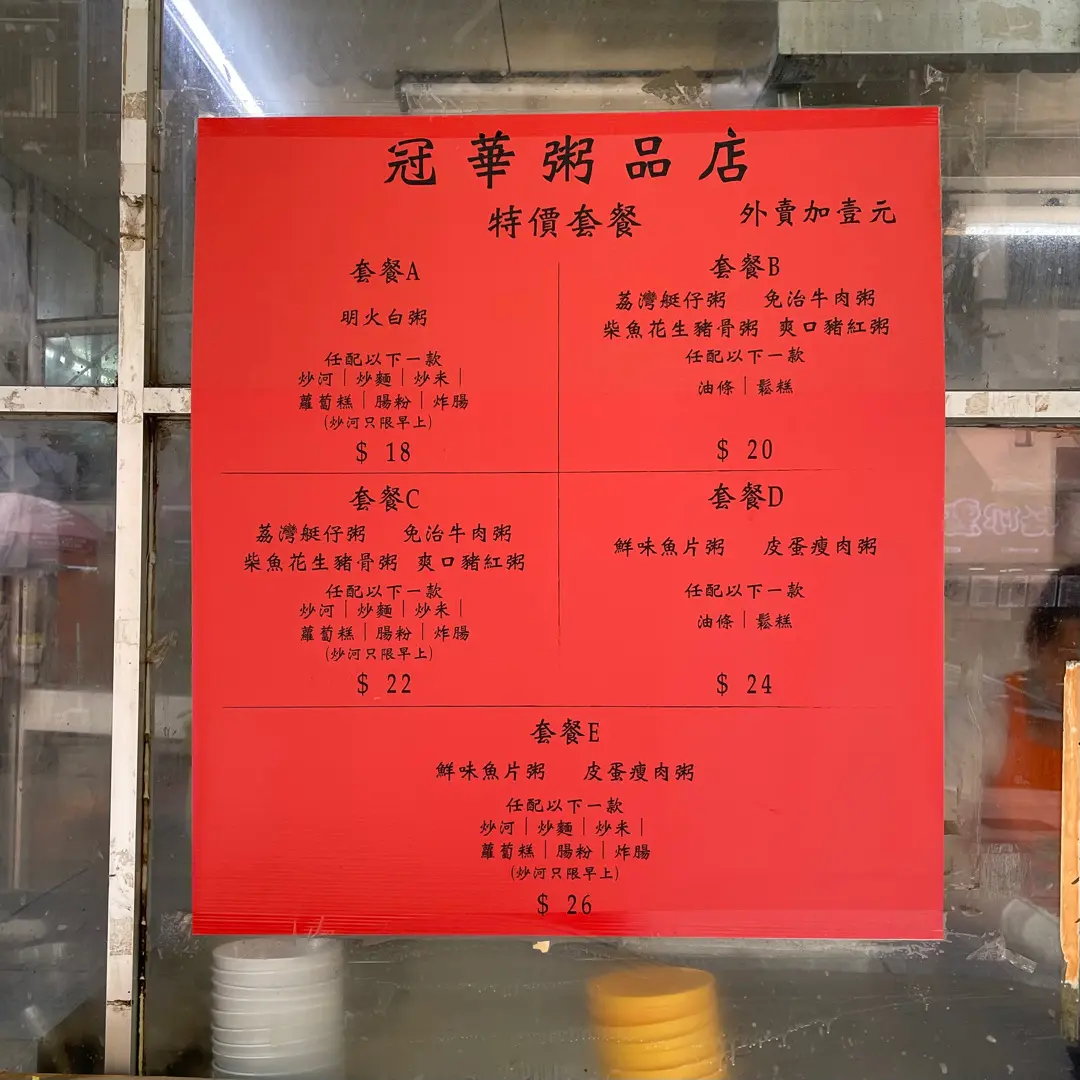 冠華粥品店
特價套餐
外賣加壹元
套餐A
明火白粥
任配以下一款
炒河｜炒麵｜炒米｜
蘿蔔糕｜腸粉｜炸腸
(炒河只限早上)
$ 18
套餐B
荔灣艇仔粥 免治牛肉粥
柴魚花生豬骨粥 爽口豬紅粥
任配以下一款
油條｜鬆糕
$ 20
套餐C
荔灣艇仔粥 免治牛肉粥
柴魚花生豬骨粥 爽口豬紅粥
任配以下一款
炒河｜炒麵｜炒米｜
蘿蔔糕｜腸粉｜炸腸
(炒河只限早上)
$ 22
套餐D
鮮味魚片粥 皮蛋瘦肉粥
任配以下一款
油條｜鬆糕
$ 24
套餐E
鮮味魚片粥 皮蛋瘦肉粥
任配以下一款
炒河｜炒麵｜炒米｜
蘿蔔糕｜腸粉｜炸腸
(炒河只限早上)
$ 26